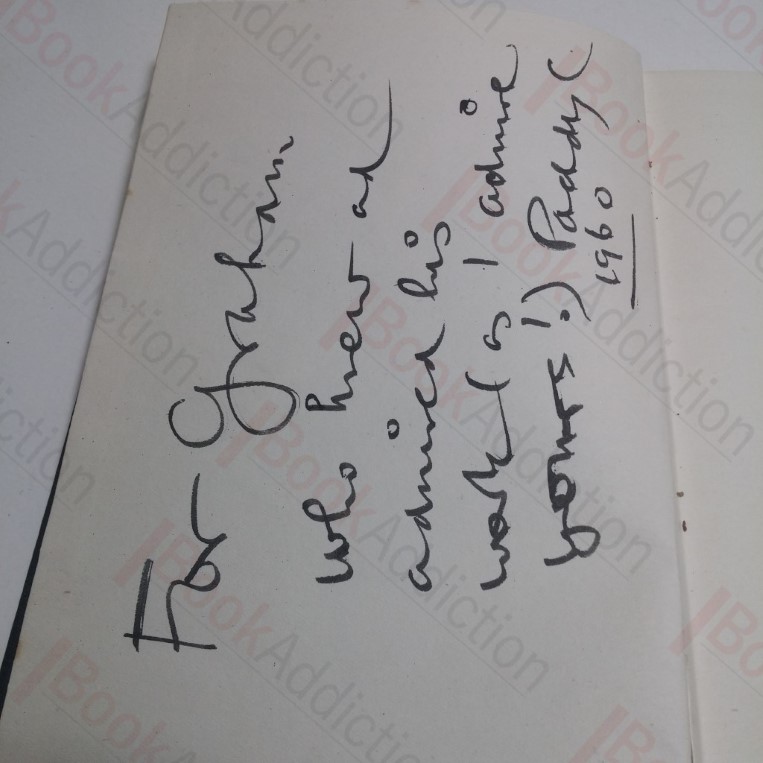 For Graham
who knew and
admired his
work (as I admire
yours!) Paddy C
1960
IBookAddiction